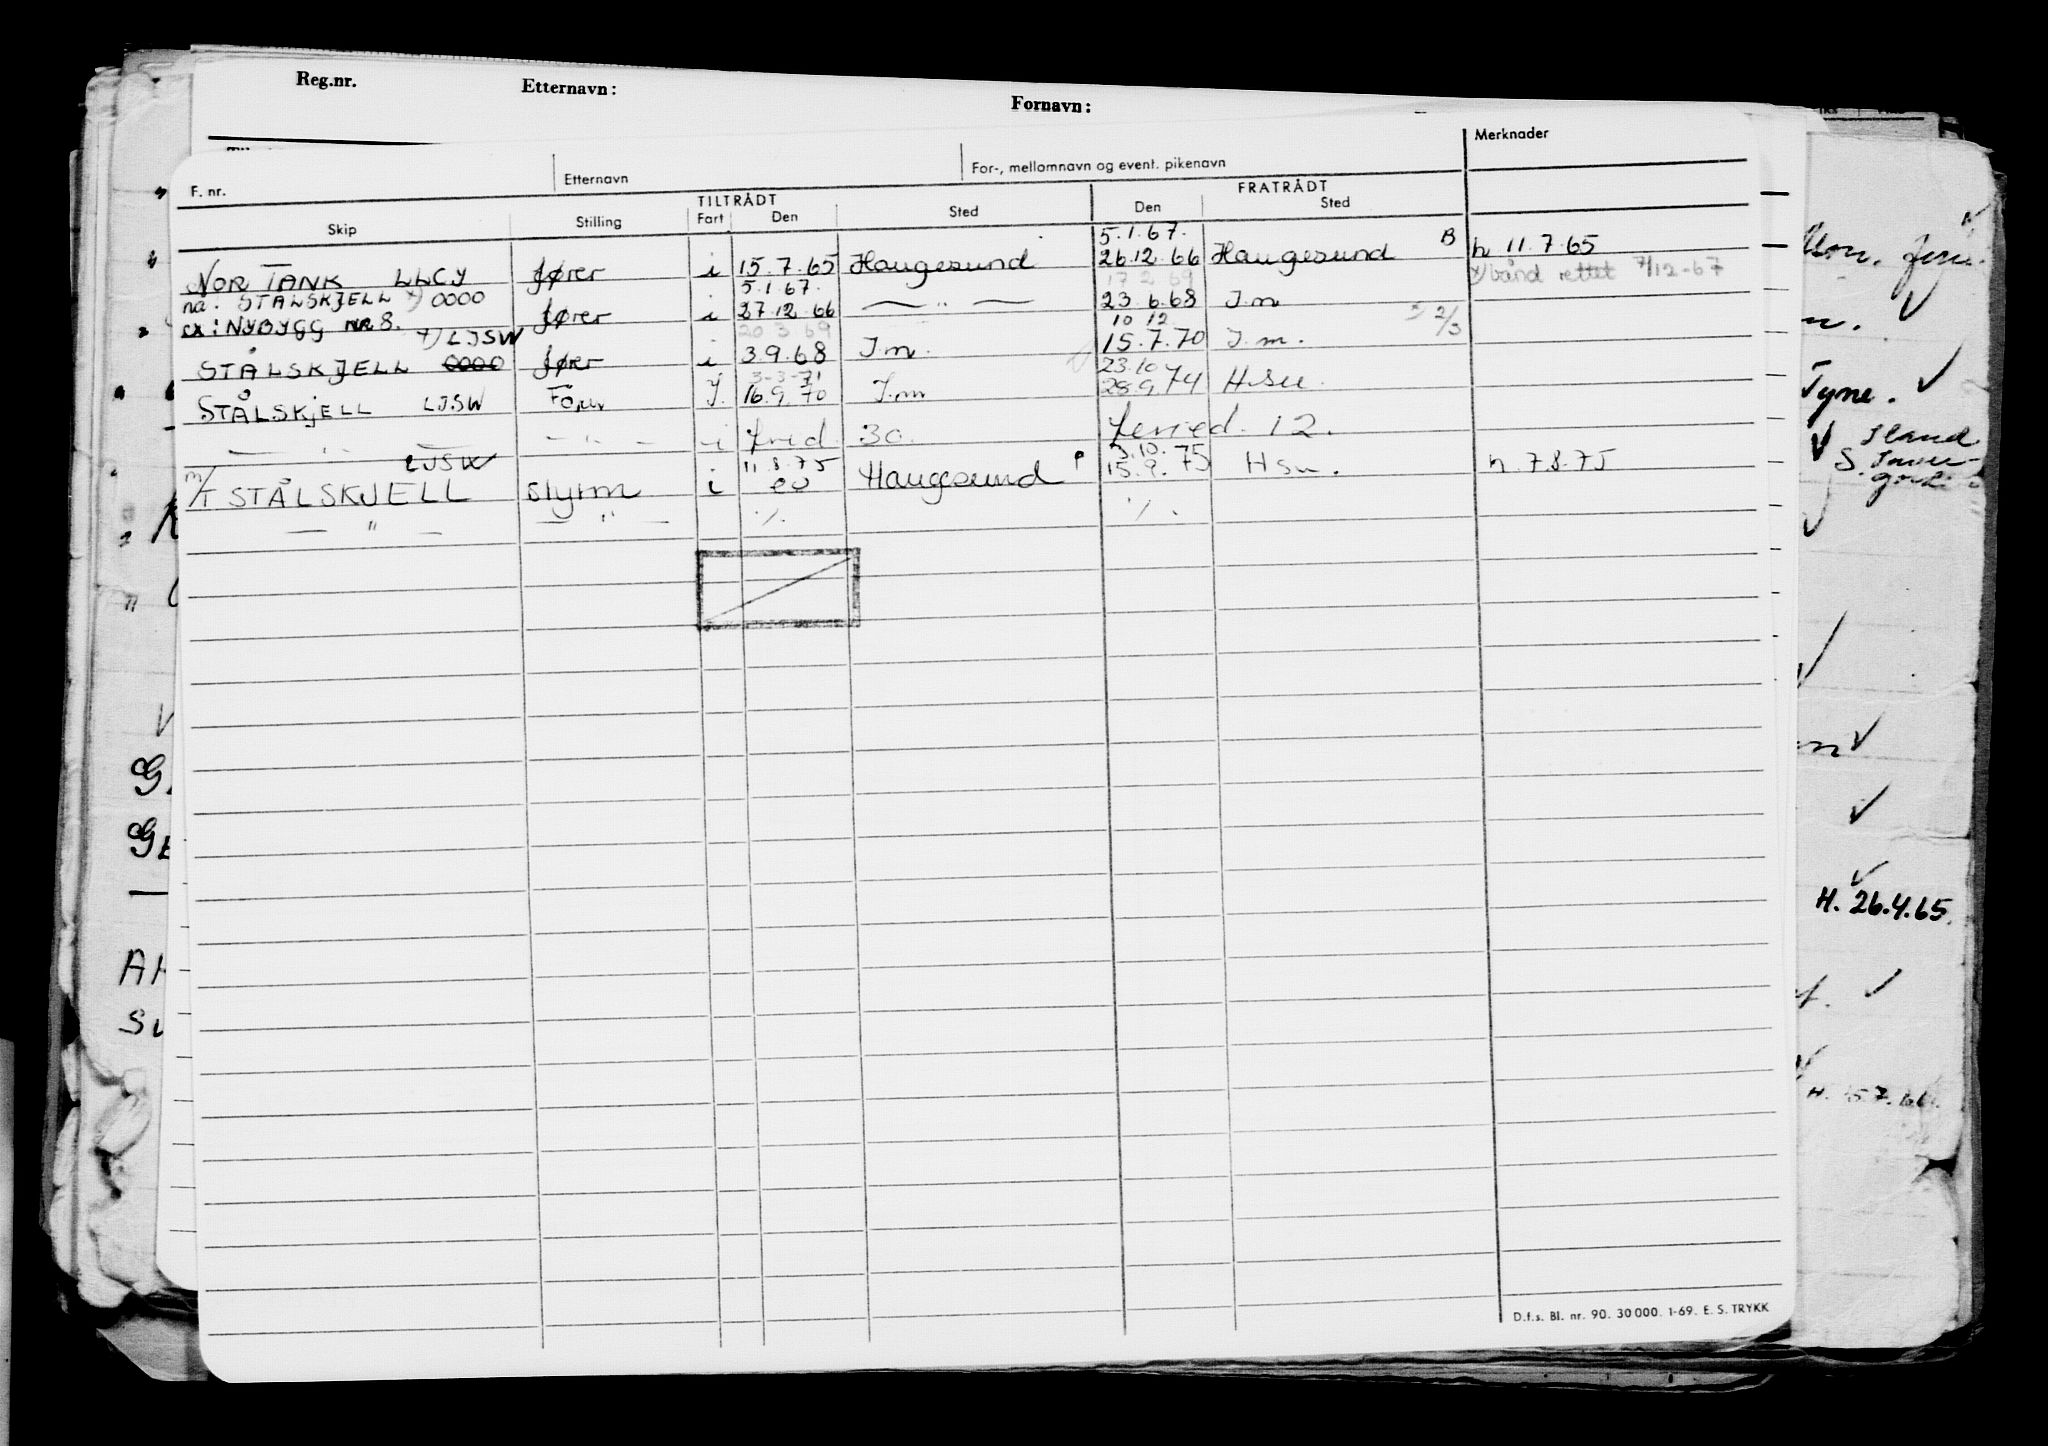 Reg.nr. Etternavn: Fornavn:
F. nr. Etternavn For-, mellomnavn og event. pikenavn Merknader
TILTRÅDT FRATRÅDT
Skip Stilling Fart Den Sted Den Sted
5.1.67.
NOR TANK LLCY fører i 15.7.65 Haugesund 26.12.66 Haugesund B h 11.7.65
5.1.67. 17 2 69 x) bånd rettet 7/12-67
nå: STÅLSKJELL x) 0000
ex: NYBYGG NR 8. fører i 27.12.66 — " — 23.6.68 I.m
x) LJSW 20 3 69 10 12 2/3
STÅLSKJELL 0000 fører i 3.9.68 I.m. 15.7.70 I.m.
3-3-71 23.10
STÅLSKJELL LJSW Fører I. 16.9.70 I.m 28.9.74 H.su.
— " — — " — i fnid 30. feried. 12.
LJSW 11.8.75 3.10.75
M/T STÅLSKJELL styrm i eu Haugesund P 15.9. Hsu. h. 7.8.75
— " — — " — ./. ./.
Tyne.
H. 26.4.65.
D.f.s. Bl. nr. 90. 30 000. 1-69. E. S. TRYKK